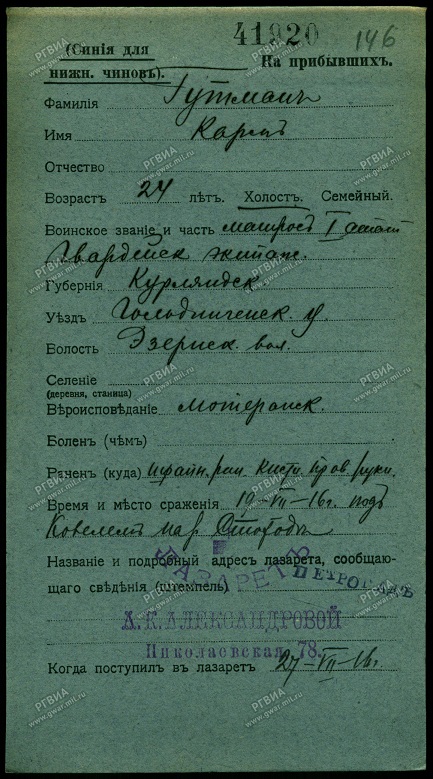 41920
146
(Синія для
нижн. чиновъ).
На прибывшихъ.
Фамилія Гутманъ
Имя Карлъ
Отчество
Возрастъ 24 лѣтъ. Холостъ. Семейный.
Воинское званіе и часть матросъ I
Гвардейск экипаж.
Губернія Курляндск
Уѣздъ у
Волость Эзернск вол.
Селеніе
(деревня, станица)
Вѣроисповѣданіе
Боленъ (чѣмъ)
Раненъ (куда) ран кисти руки
Время и мѣсто сраженія 19-VII-16г. подъ
Ковелемъ на р Стоходъ
Названіе и подробный адресъ лазарета, сообщаю-
щаго свѣдѣнія (штемпель)
ЛАЗАРЕТЪ
ПЕТРОГРАДЪ
А.К.АЛЕКСАНДРОВОЙ
Николаевская, 78.
Когда поступилъ въ лазаретъ 27-VII-16г
РГВИА
www.gwar.mil.ru